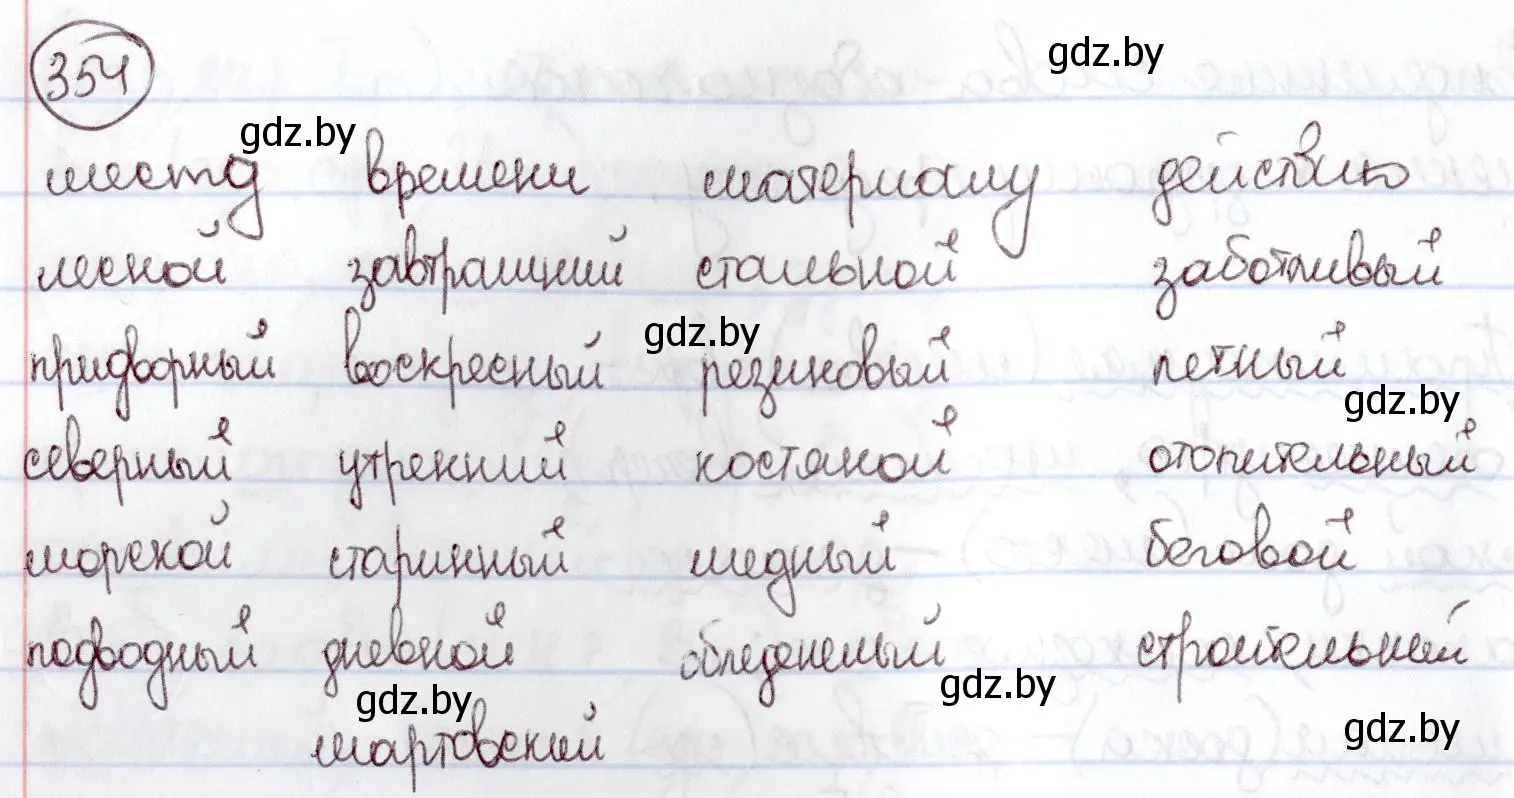 354
gdz.by
gdz.by
месту времени материалу действию
лесной завтрашний стальной заботливый
gdz.by
придворный воскресный резиновый летный
gdz.by
северный утренний костяной отопительный
морской старинный медный беговой
подводный дневной обледенелый строительный
gdz.by
gdz.by
мартовский
gdz.by